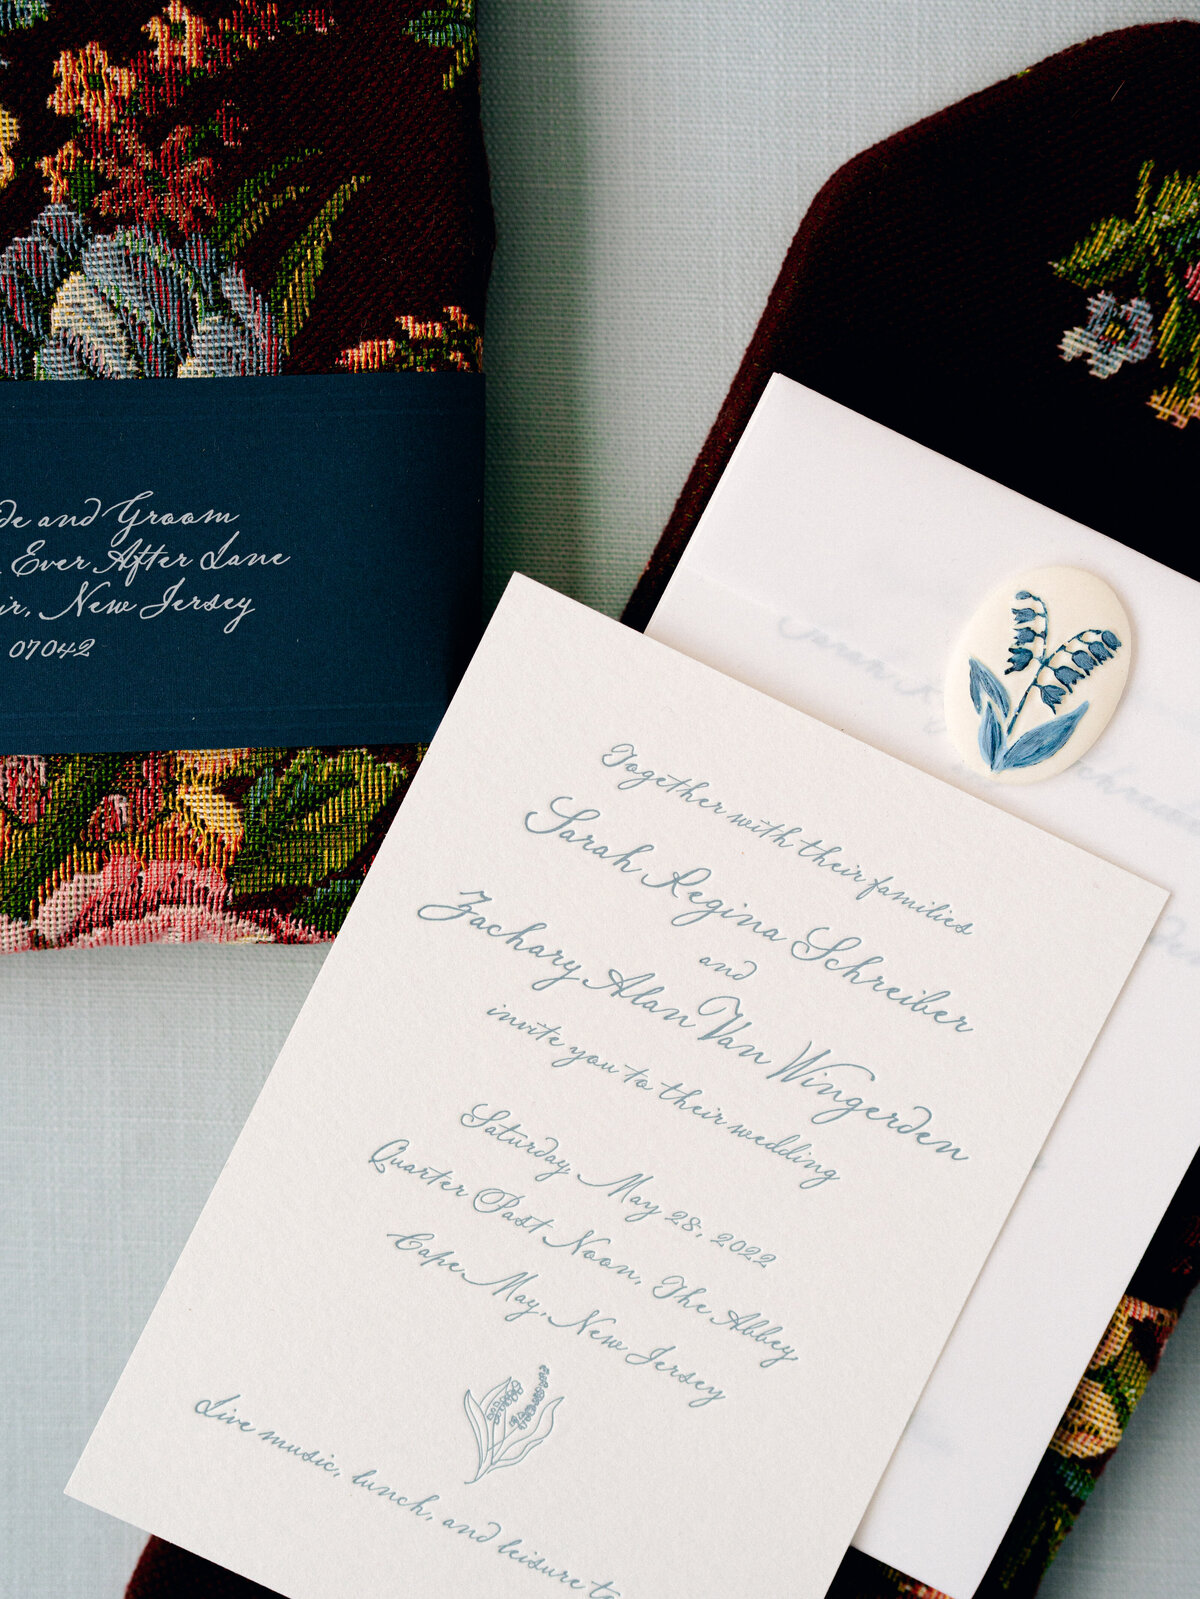 and Groom
Ever After Lane
New Jersey
07042
Together with their families
Sarah Regina Schreiber
and
Zachary Alan Van Wingerden
invite you to their wedding
Saturday May 28, 2022
Quarter Past Noon, The Abbey
Cape May, New Jersey
Live music, lunch, and leisure to